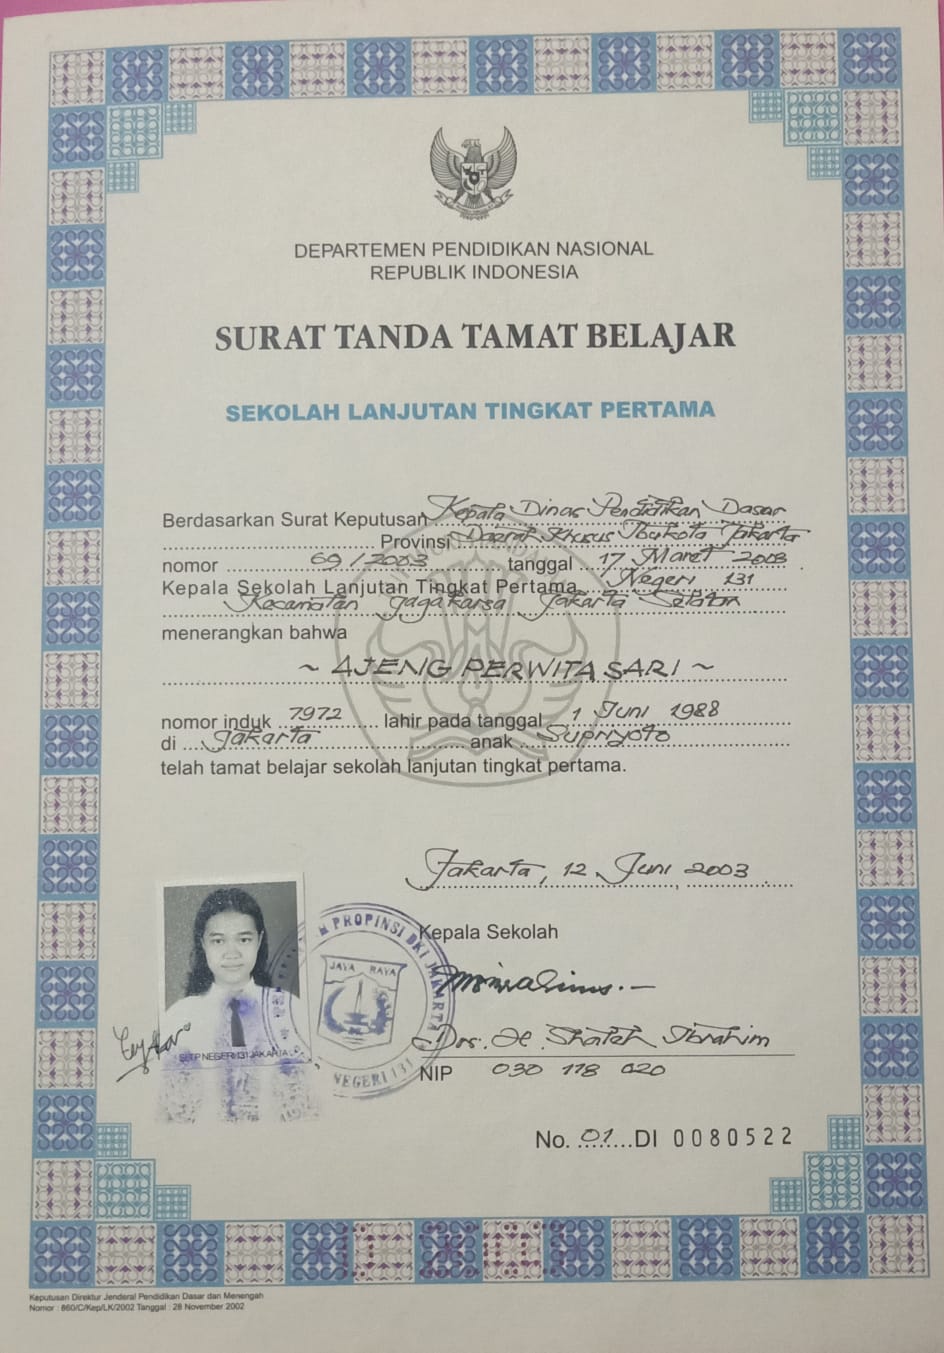 DEPARTEMEN PENDIDIKAN NASIONAL
REPUBLIK INDONESIA
SURAT TANDA TAMAT BELAJAR
SEKOLAH LANJUTAN TINGKAT PERTAMA
Berdasarkan Surat Keputusan Kepala Dinas Pendidikan Dasar
Provinsi Daerah Khusus Ibukota Jakarta
nomor 69/2003 tanggal 17 Maret 2003
Kepala Sekolah Lanjutan Tingkat Pertama Negeri 131
Kecamatan Jagakarsa Jakarta Selatan
menerangkan bahwa
~ AJENG PERWITA SARI ~
nomor induk 7972 lahir pada tanggal 1 Juni 1988
di Jakarta anak Supriyoto
telah tamat belajar sekolah lanjutan tingkat pertama.
Jakarta, 12 Juni 2003
Kepala Sekolah
PROPINSI DKI JAKARTA
JAYA RAYA
NEGERI 131
SLTP NEGERI 131 JAKARTA
Drs. H. Shaleh Ibrahim
NIP 030 118 020
No. 01 DI 0080522
Keputusan Direktur Jenderal Pendidikan Dasar dan Menengah
Nomor : 860/C/Kep/LK/2002 Tanggal : 28 November 2002